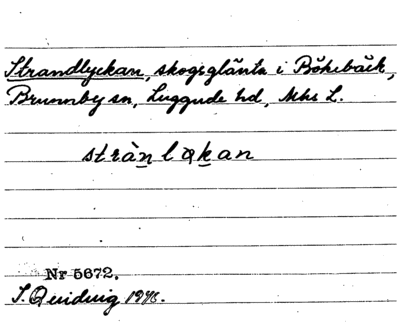 Strandlyckan, skogsglänta i Bökebäck,
Brunnby sn, Luggude hd, Mhs L.
strànlọkan
Nr 5672.
S. Qvidvig 1976.